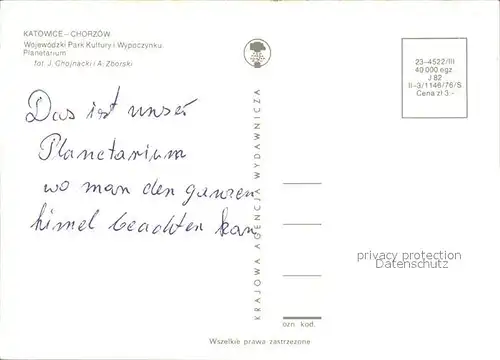 KATOWICE—CHORZÓW
Wojewódzki Park Kultury i Wypoczynku.
Planetarium
fot. J. Chojnacki i A. Zborski
23-4522/III
40 000 egz
J 82
II-3/1146/76/S
Cena zł 3.-
Das ist unser
Planetarium
wo man den ganzen
himel beachten kan
KRAJOWA AGENCJA WYDAWNICZA
privacy protection
Datenschutz
ozn kod.
Wszelkie prawa zastrzeżone